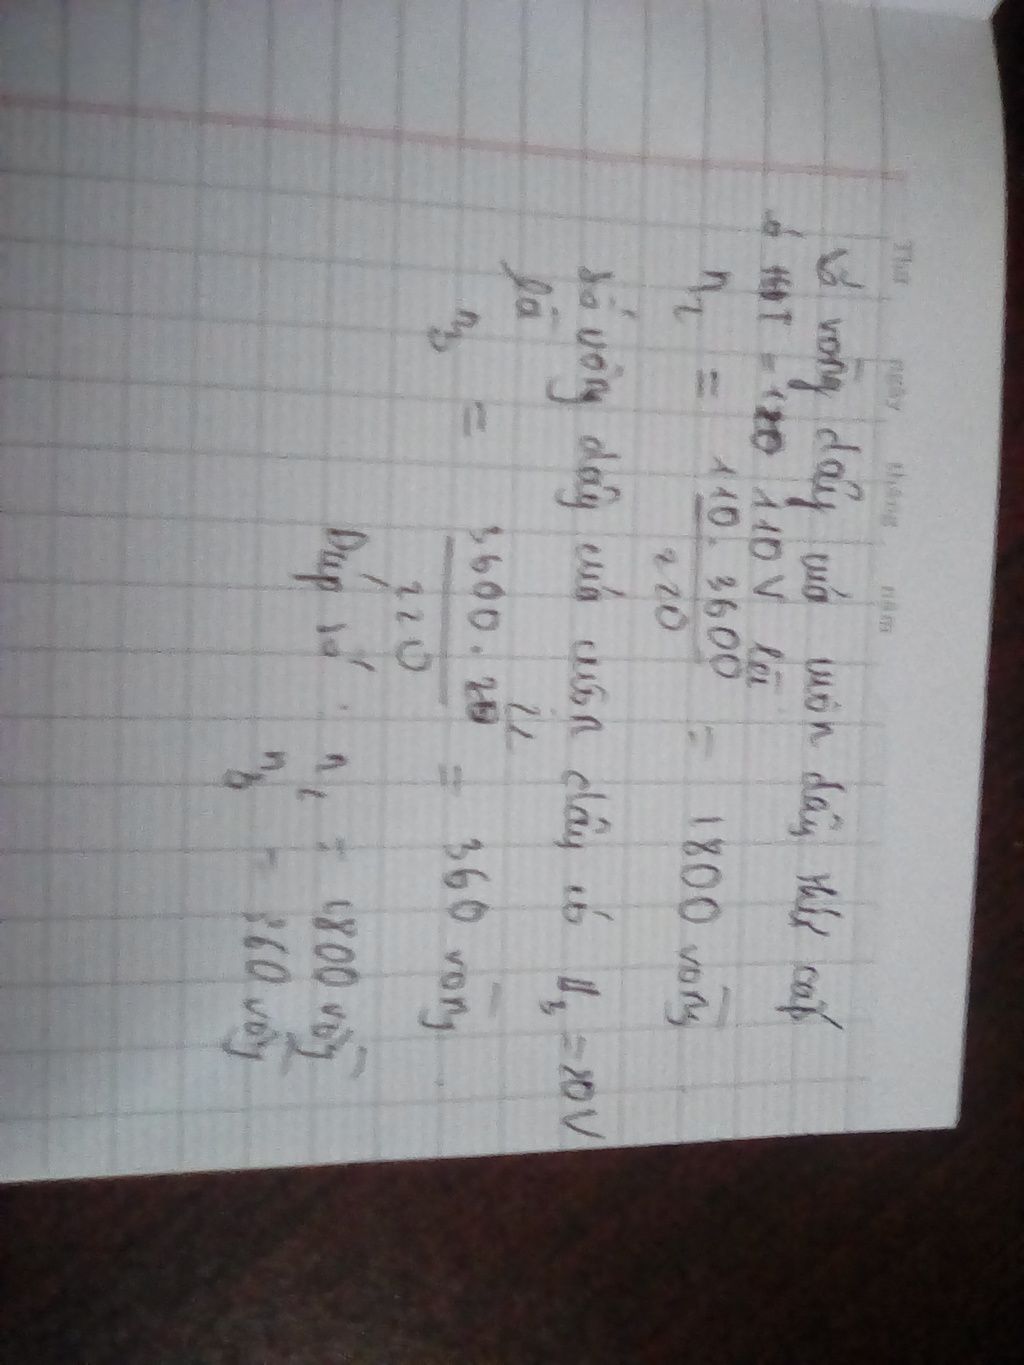 Thứ ngày tháng năm
Số vòng dây của cuộn dây thứ cấp
ở HĐT = 110 V là
n₂ = 110. 3600 / 220 = 1800 vòng
Số vòng dây của cuộn dây có U₃ = V
là
n₃ = 3600. 22 / 220 = 360 vòng
Đáp số : n₂ = 1800 vòng
n₃ = 360 vòng